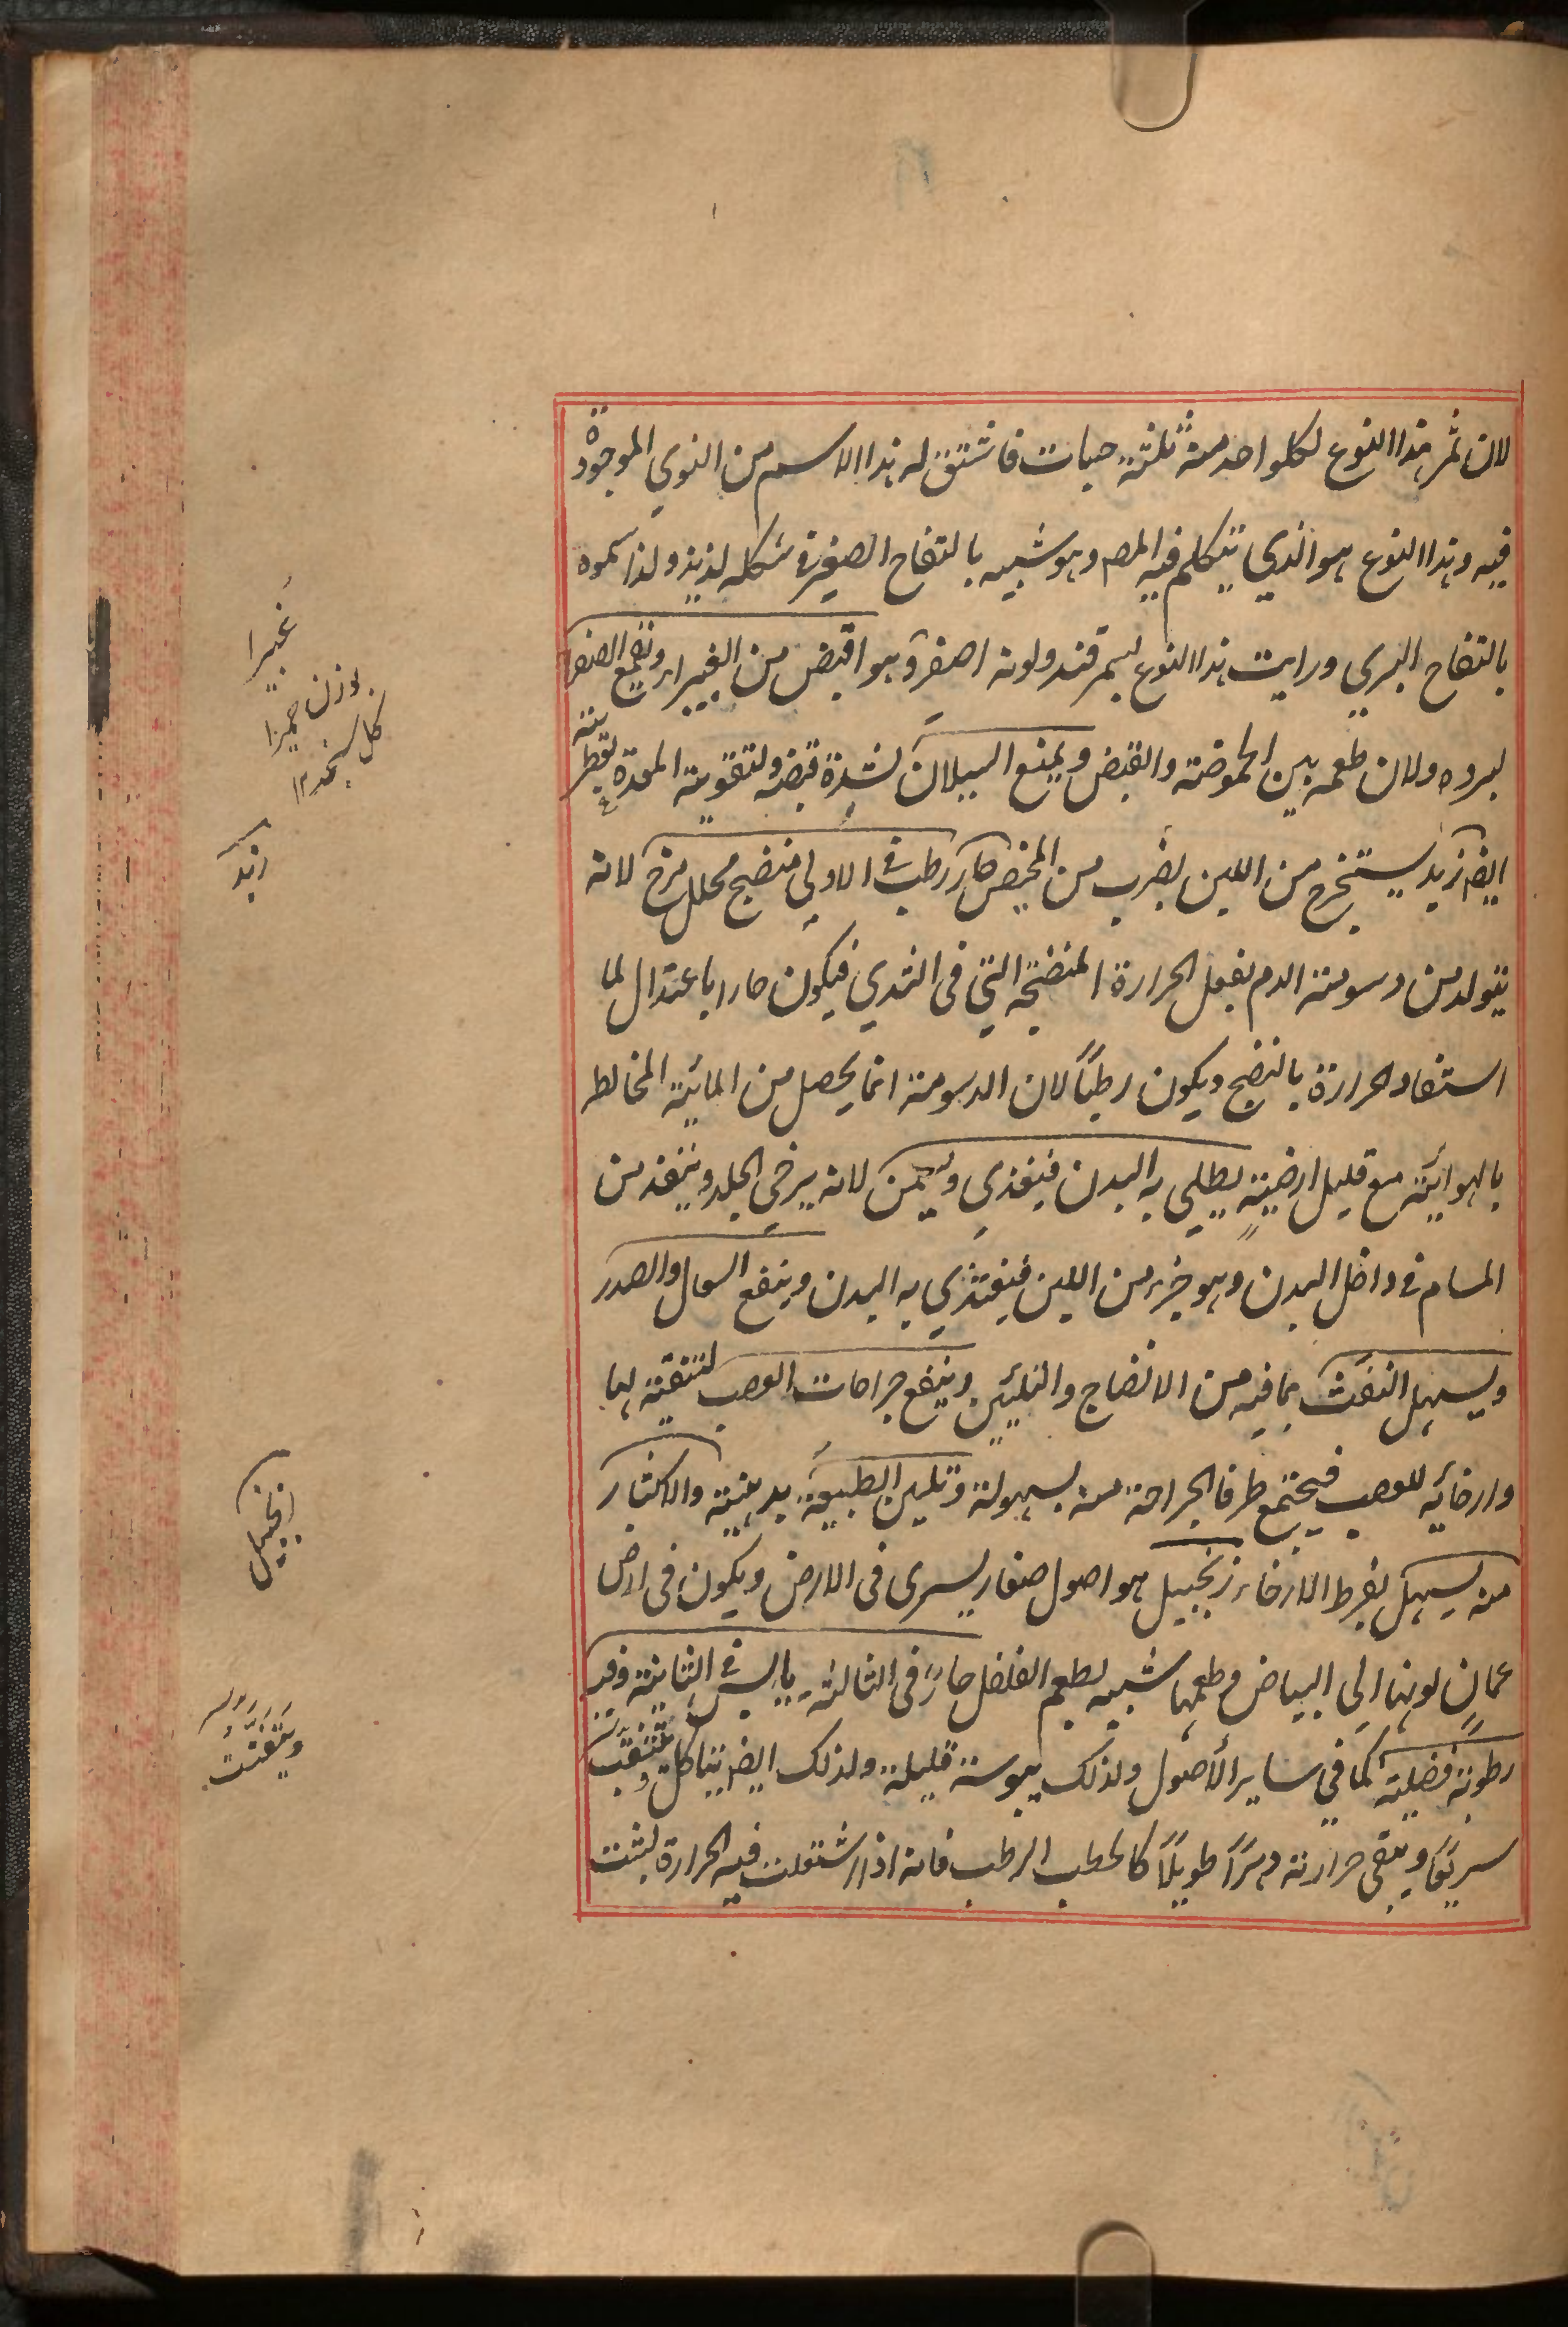 لان ثمر هذا النوع لكلواحد منه ثلثة حبات فاشتق له هذا الاسم من النوي الموجودة
فيه وهذا النوع هو الذي يتكلم فيه المص وهو شبيه بالتفاح الصغير في شكله لذيذ ولذا سموه
بالتفاح البري ورايت هذا النوع بسمرقند ولونه اصفر وهو اقبض من الغبيراء وتقمع الصفرا
لبرده ولان طعمه بين الحموضة والقبض ويمنع السيلان لشدة قبضه ولتقويته المعدة
ايضا زبد يستخرج من اللبن بضرب من المخيض حار رطب في الاولي منضج محلل مرخ لانه
يتولد من دسومته الدم بفعل الحرارة المنضجة التي في الثدي فيكون حارا باعتدال لما
استفاد الحرارة بالنضج ويكون رطبًا لان الدسومة انما يحصل من المائية المخالط
بالهوائية مع قليل ارضيةٍ يطلي به البدن فيغذي ويسمن لانه يرخي الجلد وينفذ من
المسام في داخل البدن وهو جزء من اللبن فيغتذي به البدن وينفع السعال والصدر
ويسهل النفث بما فيه من الانضاج والتليين وينفع جراحات العصب لتنقيته لها
وارخائه للعصب فيجتمع طرفا الجراحة منه بسهولة وتليين الطبيعة بدهنيته والاكثار
منه يسهل بفرط الارخاء زنجبيل هو اصول صغار يسري في الارض ويكون في ارض
عمان لونها الي البياض وطعمها شبيه بطعم الفلفل حار في الثالثة يابس في الثانية وفيه
رطوبة فضلية كما في ساير الأصول ولذلك يبوسته قليلة ولذلك ايضا يتاكل ويتثقب
سريعًا ويبقى حرارته دهرًا طويلًا كالحطب الرطب فانه اذا اشتعلت فيه الحرارة لبثت
غبيرا
بوزن حميرا
زبد
زنجبيل
ويتفتت